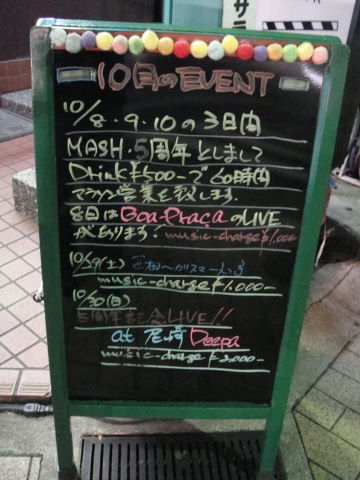 サラ
10月のEVENT
10/8・9・10の3日間
MASH・5周年としまして
Drink ¥500-で60時間
マラソン営業を致します。
8日はBoa-PraçaのLIVE
があります。music-charge ¥1.000-
10/29(土)
music-charge ¥1.000-
10/30(日)
5周年記念LIVE!!
at 尼崎 Deepa
music-charge ¥2.000-